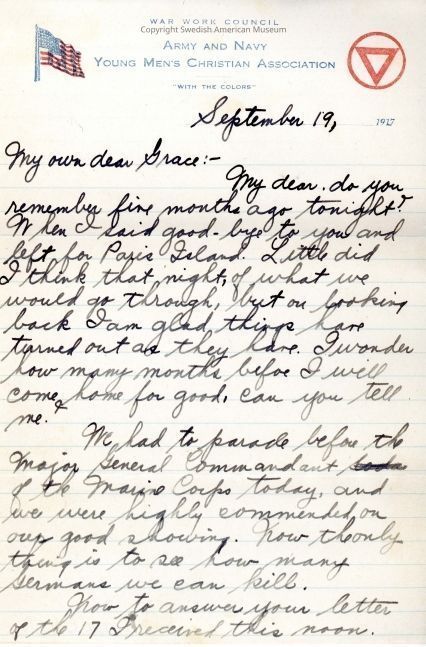 WAR WORK COUNCIL
Copyright Swedish American Museum
ARMY AND NAVY
YOUNG MEN'S CHRISTIAN ASSOCIATION
"WITH THE COLORS"
September 19, 1917
My own dear Grace:-
My dear. do you
remember five months ago tonight?
When I said good-bye to you and
left for Paris Island. Little did
I think that night, of what we
would go through, but on looking
back I am glad things have
turned out as they have. I wonder
how many months befoe I will
come home for good, can you tell
me.?
We had to parade before the
Major General Commandant
of the Marine Corps today, and
we were highly commended on
our good showing. Now the only
thing is to see how many
Germans we can kill.
Now to answer your letter
of the 17 I received this noon.